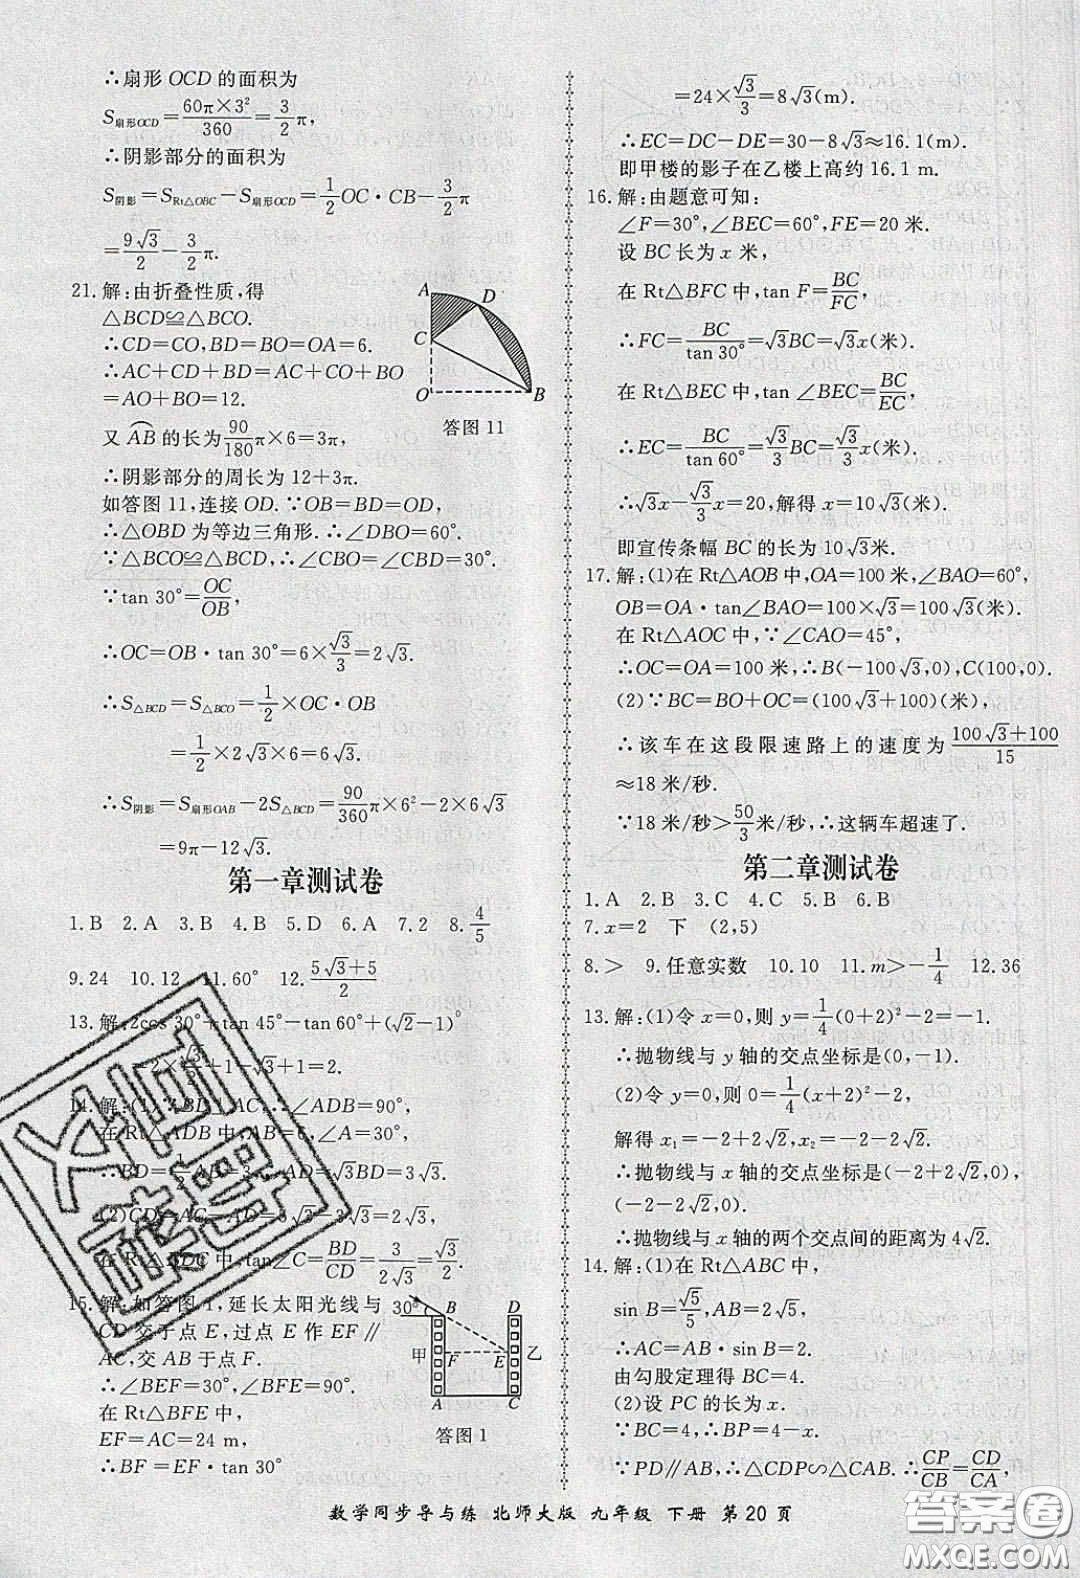 ∴扇形 OCD 的面积为
S扇形OCD=60π×3²/360=3/2π,
∴阴影部分的面积为
S阴影=SRt△OBC-S扇形OCD=1/2OC·CB-3/2π
=9√3/2-3/2π.
21.解:由折叠性质,得
△BCD≌△BCO.
∴CD=CO,BD=BO=OA=6.
∴AC+CD+BD=AC+CO+BO
=AO+BO=12.
又 AB 的长为90/180π×6=3π,
∴阴影部分的周长为 12+3π.
如答图 11,连接 OD. ∵OB=BD=OD,
∴△OBD 为等边三角形. ∴∠DBO=60°.
∵△BCO≌△BCD,∴∠CBO=∠CBD=30°.
∵tan 30°=OC/OB,
∴OC=OB·tan 30°=6×√3/3=2√3.
∴S△BCD=S△BCO=1/2×OC·OB
=1/2×2√3×6=6√3.
∴S阴影=S扇形OAB-2S△BCD=90/360π×6²-2×6√3
=9π-12√3.
A
D
C
O
B
答图 11
第一章测试卷
1.B 2.A 3.B 4.B 5.D 6.A 7.2 8.4/5
9.24 10.12 11.60° 12.(5√3+5)/2
13.解:2cos 30°+tan 45°-tan 60°+(√2-1)⁰
=2×√3/2+1-√3+1=2.
14.解:(1)∵BD⊥AC,∴∠ADB=90°,
在 Rt△ADB 中,AB=6,∠A=30°,
∴BD=1/2AB=3,AD=√3BD=3√3.
(2)CD=AC-AD=5√3-3√3=2√3,
在 Rt△BDC 中,tan∠C=BD/CD=3/2√3=√3/2.
15.解:如答图 1,延长太阳光线与
CD 交于点 E,过点 E 作 EF∥
AC,交 AB 于点 F.
∴∠BEF=30°,∠BFE=90°.
在 Rt△BFE 中,
EF=AC=24 m,
∴BF=EF·tan 30°
30°
B
D
甲
F
E
乙
A
C
答图 1
=24×√3/3=8√3(m).
∴EC=DC-DE=30-8√3≈16.1(m).
即甲楼的影子在乙楼上高约 16.1 m.
16.解:由题意可知:
∠F=30°,∠BEC=60°,FE=20(米).
设 BC 长为 x 米,
在 Rt△BFC 中,tan F=BC/FC,
∴FC=BC/tan 30°=√3BC=√3x(米).
在 Rt△BEC 中,tan ∠BEC=BC/EC,
∴EC=BC/tan 60°=√3/3BC=√3/3x(米).
∴√3x-√3/3x=20,解得 x=10√3(米).
即宣传条幅 BC 的长为 10√3米.
17.解:(1)在 Rt△AOB 中,OA=100 米,∠BAO=60°,
OB=OA·tan∠BAO=100×√3=100√3(米).
在 Rt△AOC 中,∵∠CAO=45°,
∴OC=OA=100 米,∴B(-100√3,0),C(100,0).
(2)∵BC=BO+OC=(100√3+100)(米),
∴该车在这段限速路上的速度为(100√3+100)/15
≈18 米/秒.
∵18 米/秒>50/3米/秒,∴这辆车超速了.
第二章测试卷
1.A 2.B 3.C 4.C 5.B 6.B
7.x=2 下 (2,5)
8.> 9.任意实数 10.10 11.m>-1/4 12.36
13.解:(1)令 x=0,则 y=1/4(0+2)²-2=-1.
∴抛物线与 y 轴的交点坐标是(0,-1).
(2)令 y=0,则 0=1/4(x+2)²-2,
解得 x₁=-2+2√2,x₂=-2-2√2.
∴抛物线与 x 轴的交点坐标是(-2+2√2,0),
(-2-2√2,0).
∴抛物线与 x 轴的两个交点间的距离为 4√2.
14.解:(1)在 Rt△ABC 中,
sin B=√5/5,AB=2√5,
∴AC=AB·sin B=2.
由勾股定理得 BC=4.
(2)设 PC 的长为 x.
∵BC=4,∴BP=4-x.
∵PD∥AB,∴△CDP∽△CAB.∴CP/CB=CD/CA,
数学同步导与练 北师大版 九年级 下册 第20页
答案圈
MXQE.COM